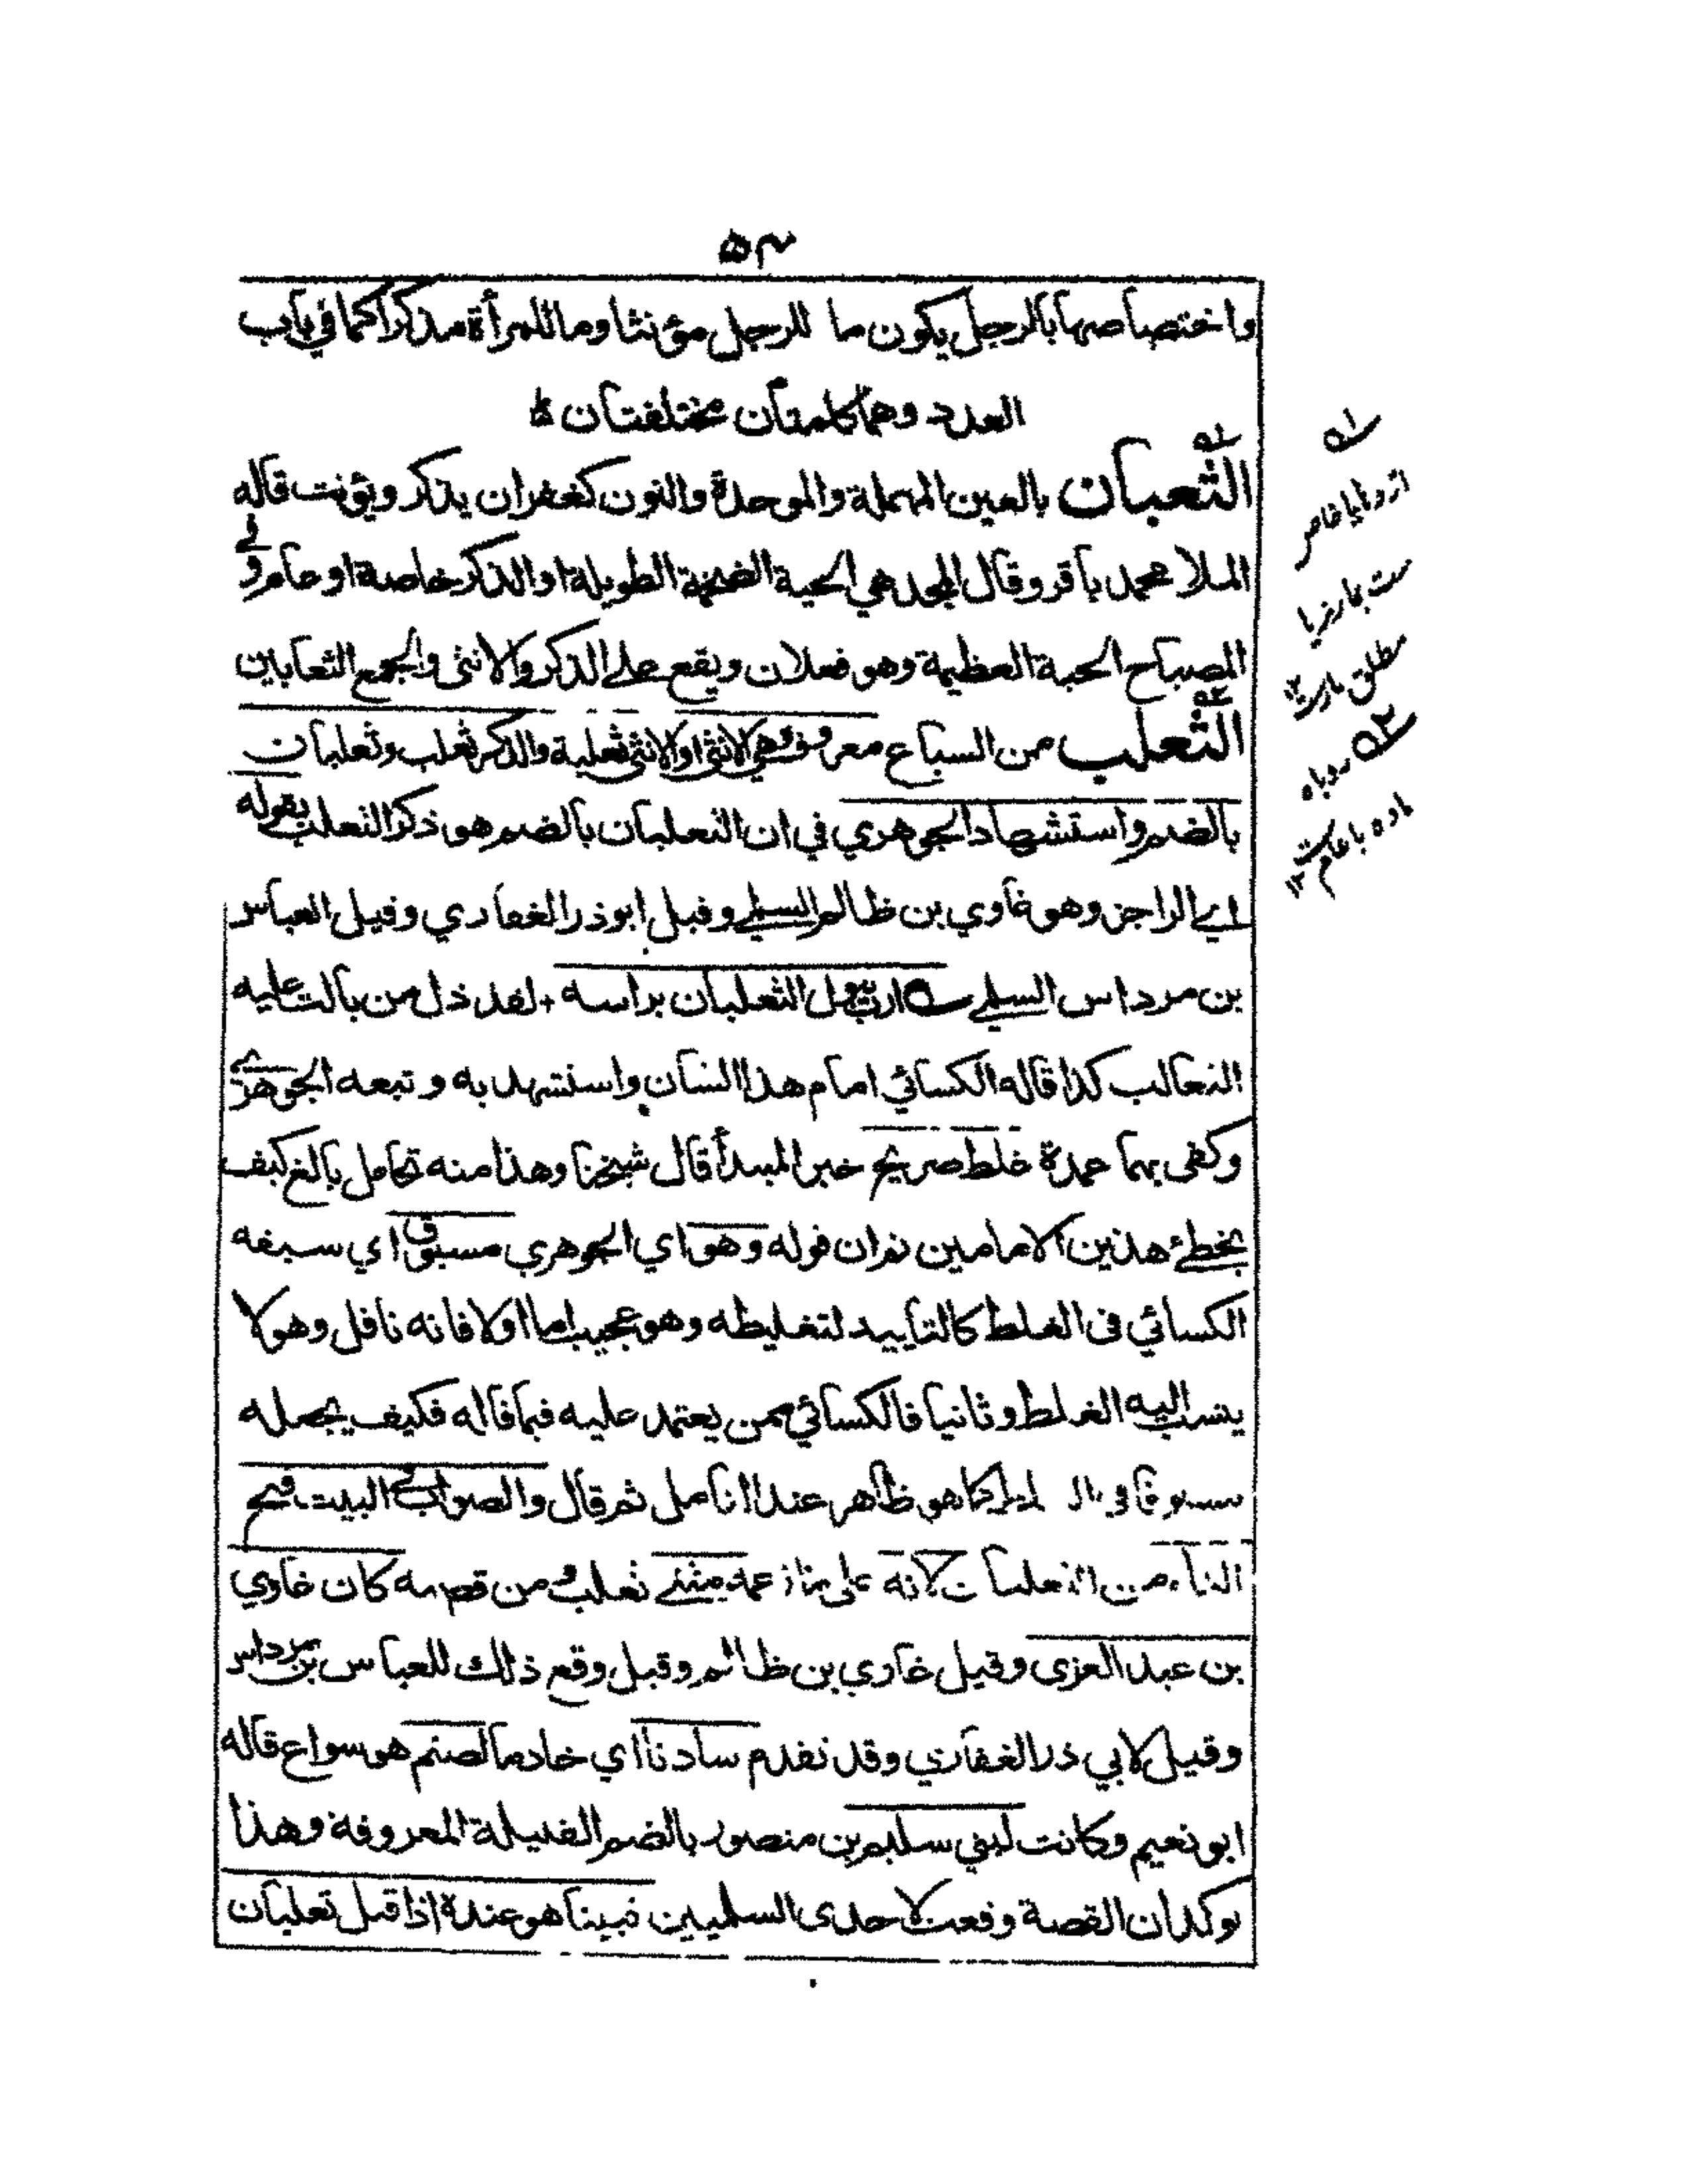 ۵۳
واختصاصها بالرجل يكون ما للرجل مؤنثا وما للمرأة مذكرا كما في باب
العدد وهما كلمتان مختلفتان
الثعبان بالعين المهملة والموحدة والنون كغفران يذكر ويؤنث قاله
الملا محمد باقر وقال المجد هي الحية الضخمة الطويلة او الذكر خاصة او عام وفي
المصباح الحية العظيمة وهو فعلان ويقع على الذكر والانثى والجمع الثعابين
الثعلب من السباع معروف وهي الانثى او الانثى ثعلبة والذكر ثعلب وثعلبان
بالضم واستشهاد الجوهري في ان الثعلبان بالضم هو ذكر الثعلب بقوله
اي الراجز وهو غاوي بن ظالم السلمي وقيل ابو ذر الغفاري وقيل العباس
بن مرداس السلمي ارب يبول الثعلبان براسه + لقد ذل من بالت عليه
الثعالب كذا قاله الكسائي امام هذا الشان واستشهد به وتبعه الجوهري
وكفى بهما عمدة غلط صريح خبر المبتدأ قال شيخنا وهذا منه تحامل بالغ كيف
يخطئ هذين الامامين ثم ان قوله وهو اي الجوهري مسبوق اي سبقه
الكسائي في الغلط كالتاييد لتغليطه وهو عجيب اما اولا فانه ناقل وهو لا
ينسب اليه الغلط وثانيا فالكسائي ممن يعتمد عليه فيما قاله فكيف يجعله
مسبوقا في الغلط كما هو ظاهر عند التامل ثم قال والصواب في البيت فتح
الثاء من الثعلبان لانه على ما زعمه مثنى ثعلب ومن قصته كان غاوي
بن عبد العزى وقيل غاوي بن ظالم وقيل وقع ذلك للعباس بن مرداس
وقيل لابي ذر الغفاري وقد تقدم سادنا اي خادما لصنم هو سواع قاله
ابو نعيم وكانت لبني سليم بن منصور بالضم القبيلة المعروفة وهذا
يوكد ان القصة وقعت لاحدى السلميين فبينا هو عنده اذا قبل ثعلبان
۵۱
مطلق مار ۱۲
۵۲ روباه
ماده یا عام ۱۲